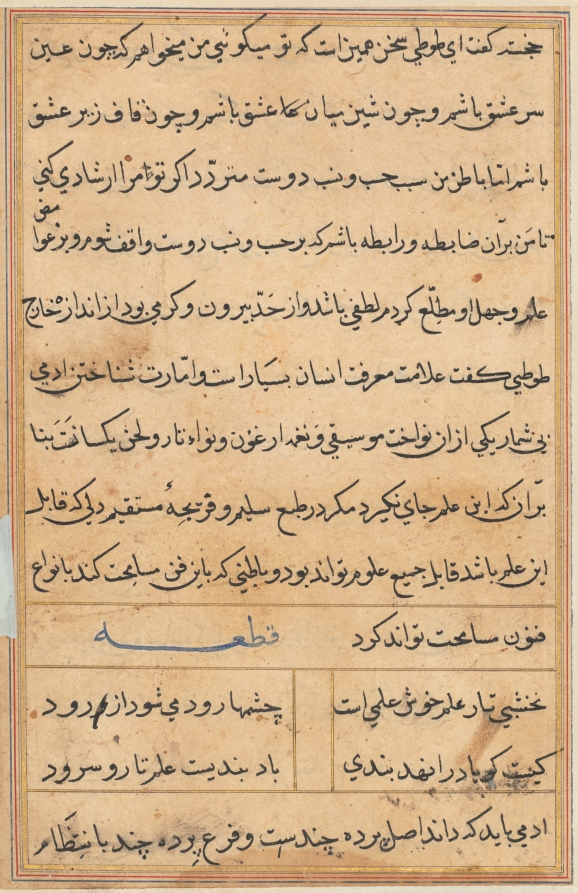 خجسته کفت ای طوطی سخن همین است که تو میکوئی من میخواهم که چون عین
سر عشق باشم و چون شین میان عشق باشم و چون قاف زیر عشق
باشم اما باطن من سبب حب ونب دوست متردد اکر تو مرا ارشادی کنی
تا من بر آن ضابطه و رابطه باشم که بر حب ونب دوست واقف شوم و بر غوامض
علم و جهل او مطلع کردم لطفی باشد و از حد بیرون و کرمی بود از اندازه خارج
طوطی کفت علامت معرفت انسان بسیار است و امارت شناختن ادمی
بی شمار یکی از ان نواخت موسیقی و نغمه ارغنون و نواء تار و لحن یکسانست بنا
بر آن که این علم جای نکیرد مکر در طبع سلیم و قریحهٔ مستقیم دلی که قابل
این علم باشد قابل جمیع علوم تواند بود و باطنی که باین فن مسامحت کند بانواع
فنون مسامحت تواند کرد قطعه
نخشبی تار علم خوش علمی است چشمها رود می شود از رود
کیست کو باد را نهد بندی باد بندیست علم تار و سرود
ادمی باید که داند اصل پرده چند ست و فرع پرده چند با نتظام